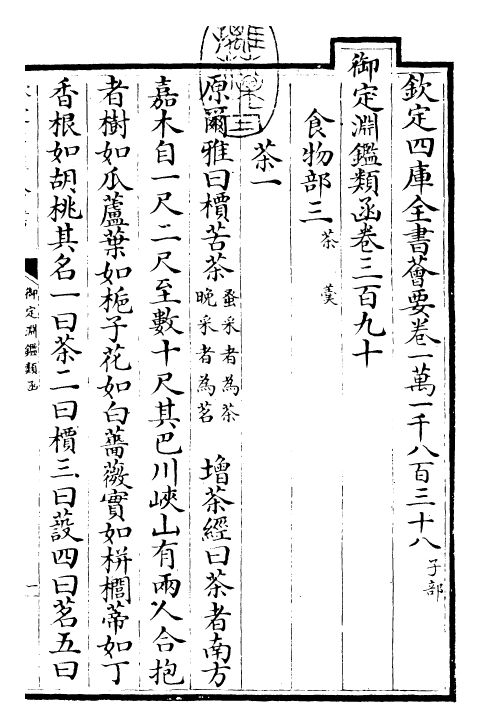 欽定四庫全書薈要卷一萬一千八百三十八 子部
御定淵鑑類函卷三百九十
食物部三 茶 羹
茶一
原爾雅曰檟苦茶 蚤采者為茶 晚采者為茗 增茶經曰茶者南方
嘉木自一尺二尺至數十尺其巴川峽山有兩人合抱
者樹如瓜蘆葉如梔子花如白薔薇實如栟櫚蒂如丁
香根如胡桃其名一曰茶二曰檟三曰蔎四曰茗五曰
御定淵鑑類函
一